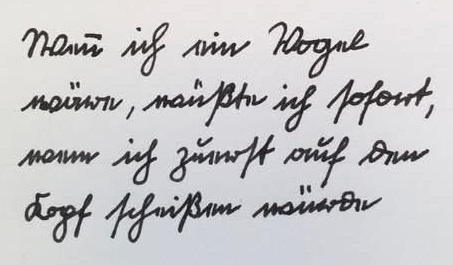 Wenn ich ein Vogel
wäre, wüßte ich sofort,
wem ich zuerst auf den
Kopf scheißen würde